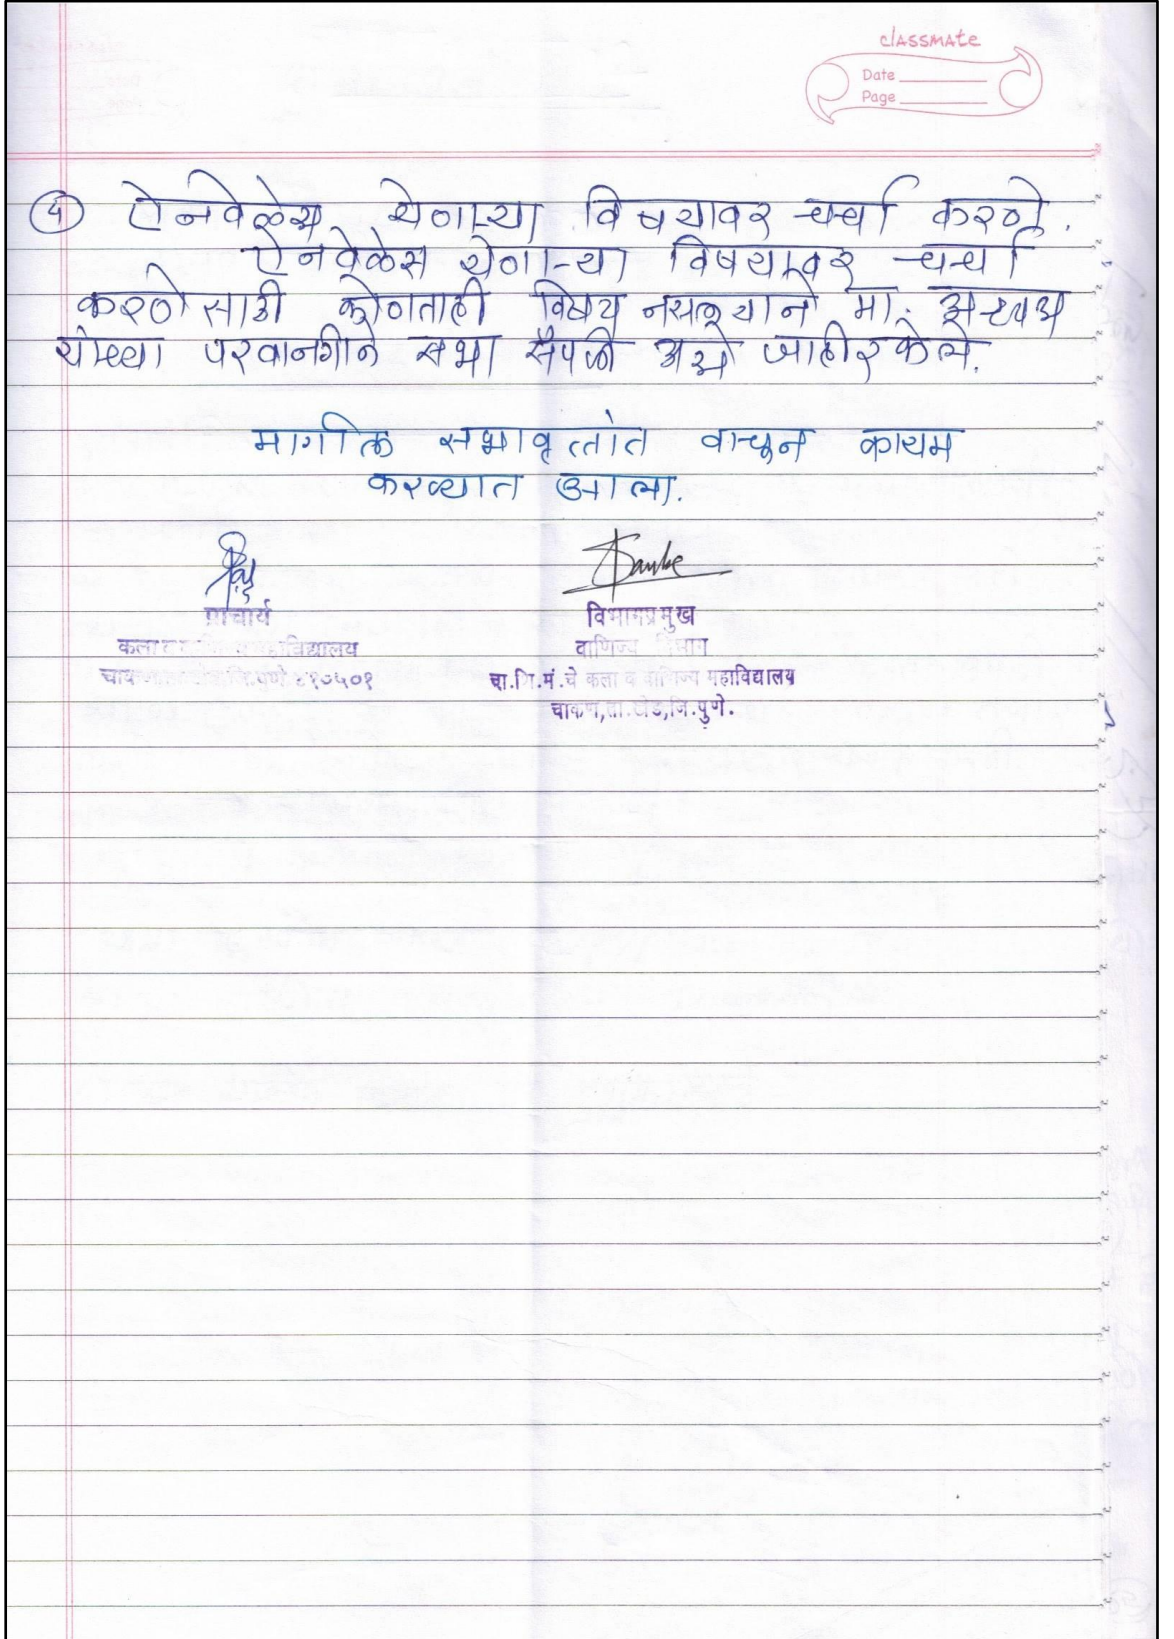 classmate
Date
Page
५ ऐनवेळेस येणाऱ्या विषयावर चर्चा करणे.
ऐनवेळेस येणाऱ्या विषयावर चर्चा
करणेसाठी कोणताही विषय नसल्याने मा. अध्यक्ष
यांच्या परवानगीने सभा संपली असे जाहीर केले.
मागील सभावृत्तांत वाचून कायम
करण्यात आला.
प्राचार्य
विभागप्रमुख
कला महाविद्यालय
वाणिज्य विभाग
जि.पुणे ४१०५०१
चा.शि.मं.चे कला व वाणिज्य महाविद्यालय
चाकण,ता.खेड,जि.पुणे.